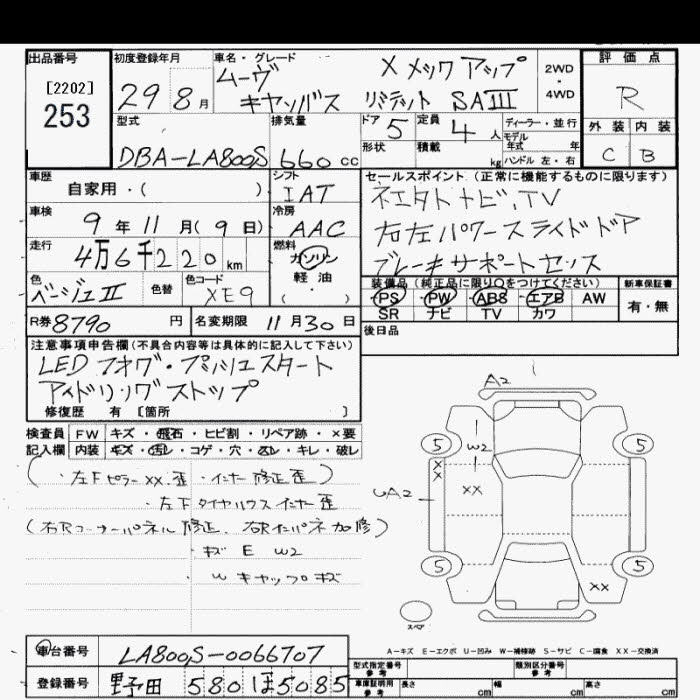 出品番号 初度登録年月 車名・グレード 評価点
[2202] ムーヴ X メイクアップ 2WD
253 29 8月 キャンバス リミテッド SAIII ・ 4WD R
型式 排気量 ドア 5 定員 4人 ディーラー・並行 外装 内装
モデル年式 年
DBA-LA800S 660cc 形状 積載 kg ハンドル 左・右 C B
車歴 シフト セールスポイント (正常に機能するものに限ります)
自家用・( ) IAT ナビ、TV
車検 冷房 右左パワースライドドア
9年11月(9日) AAC
走行 燃料 ブレーキサポート
4万6千220km ガソリン
軽・油
( ・ )
色 色替 色コード 装備品(純正品に限り○をつけてください) 新車保証書
ベージュII XE9 PS PW ABS エアB AW 有・無
SR ナビ TV カワ
R券 8790円 名変期限 11月30日 後日品
注意事項申告欄(不具合内容等は具体的に記入して下さい)
LED フォグ・プッシュスタート
アイドリングストップ
修復歴 有 [箇所 ]
検査員 FW キズ・飛石・ヒビ割・リペア跡・×要
記入欄 内装 キズ・汚レ・コゲ・穴・スレ・キレ・破レ
(・左Fピラーxx.歪・インナー修正歪)
・左Fタイヤハウスインナー歪
(右Rコーナーパネル修正、右Rインパネ加修)
キズ E W2
W キャップキズ
A2
5 5
W2
x
x
xx
UA2
5 5
xx
スペア
A-キズ E-エクボ U-凹み W-補修跡 S-サビ C-腐食 XX-交換済
車台番号 LA800S-0066707 型式指定番号 参考 類別区分番号 参考
登録番号 野田 580 ほ 5085 車庫証明用 参考 長さ cm 幅 cm 高さ cm